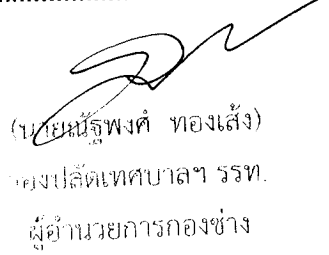 (นายณัฐพงศ์ ทองเส้ง)
รองปลัดเทศบาลฯ รรท.
ผู้อำนวยการกองช่าง